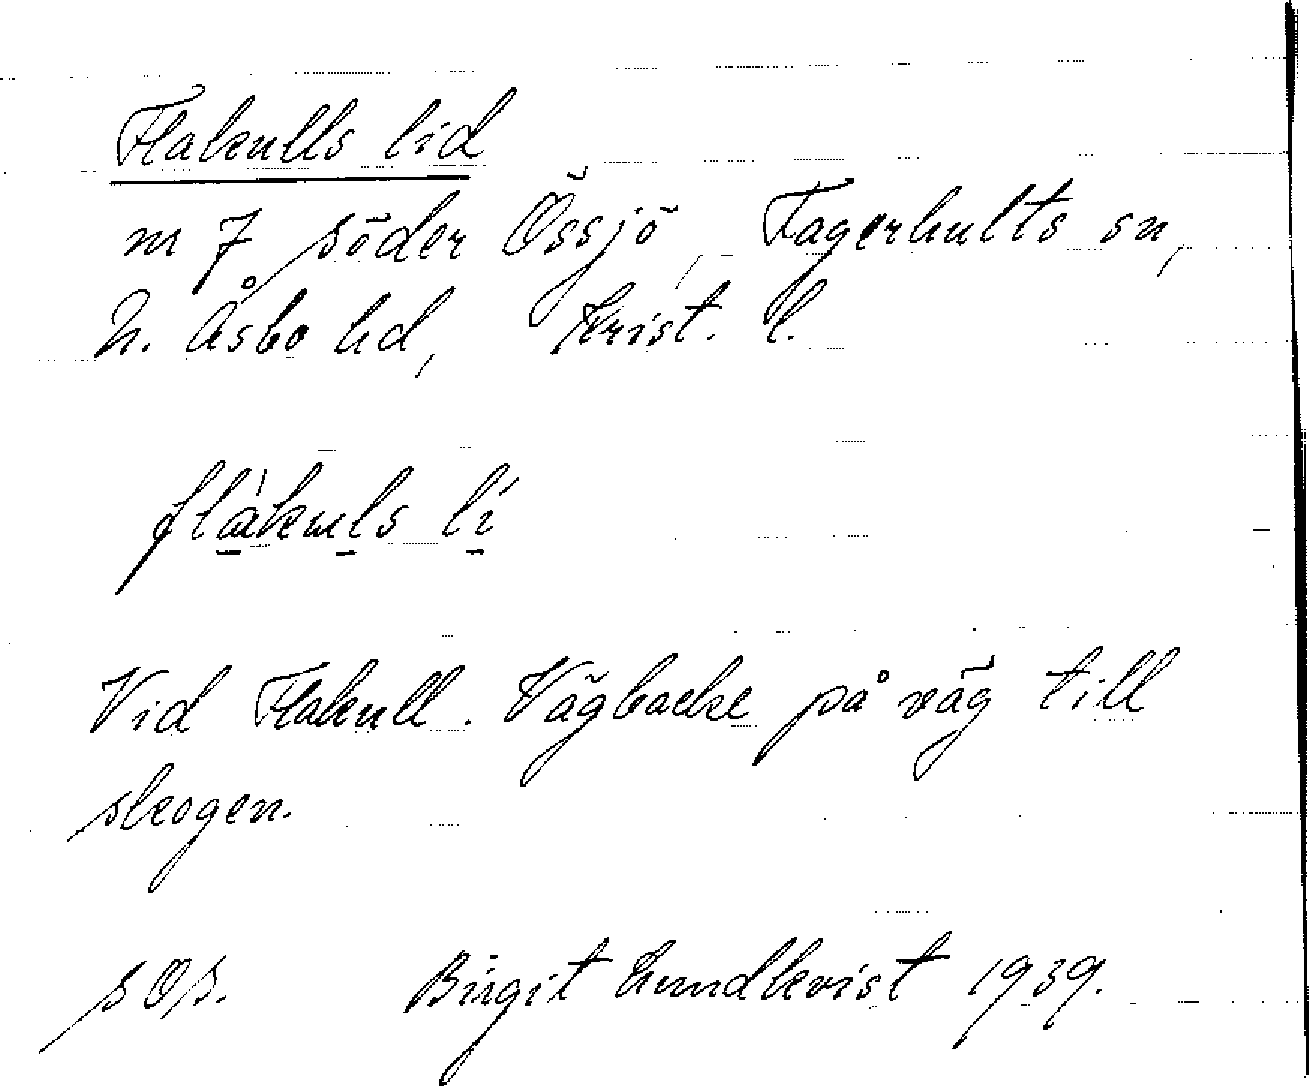 Flakulls lid
m 7 söder Össjö, Fagerhults sn,
N. Åsbo hd, Krist. l.
flàkuls lí
Vid Flakull. Vägbacke på väg till
skogen.
s Ös. Birgit Lundkvist 1939.